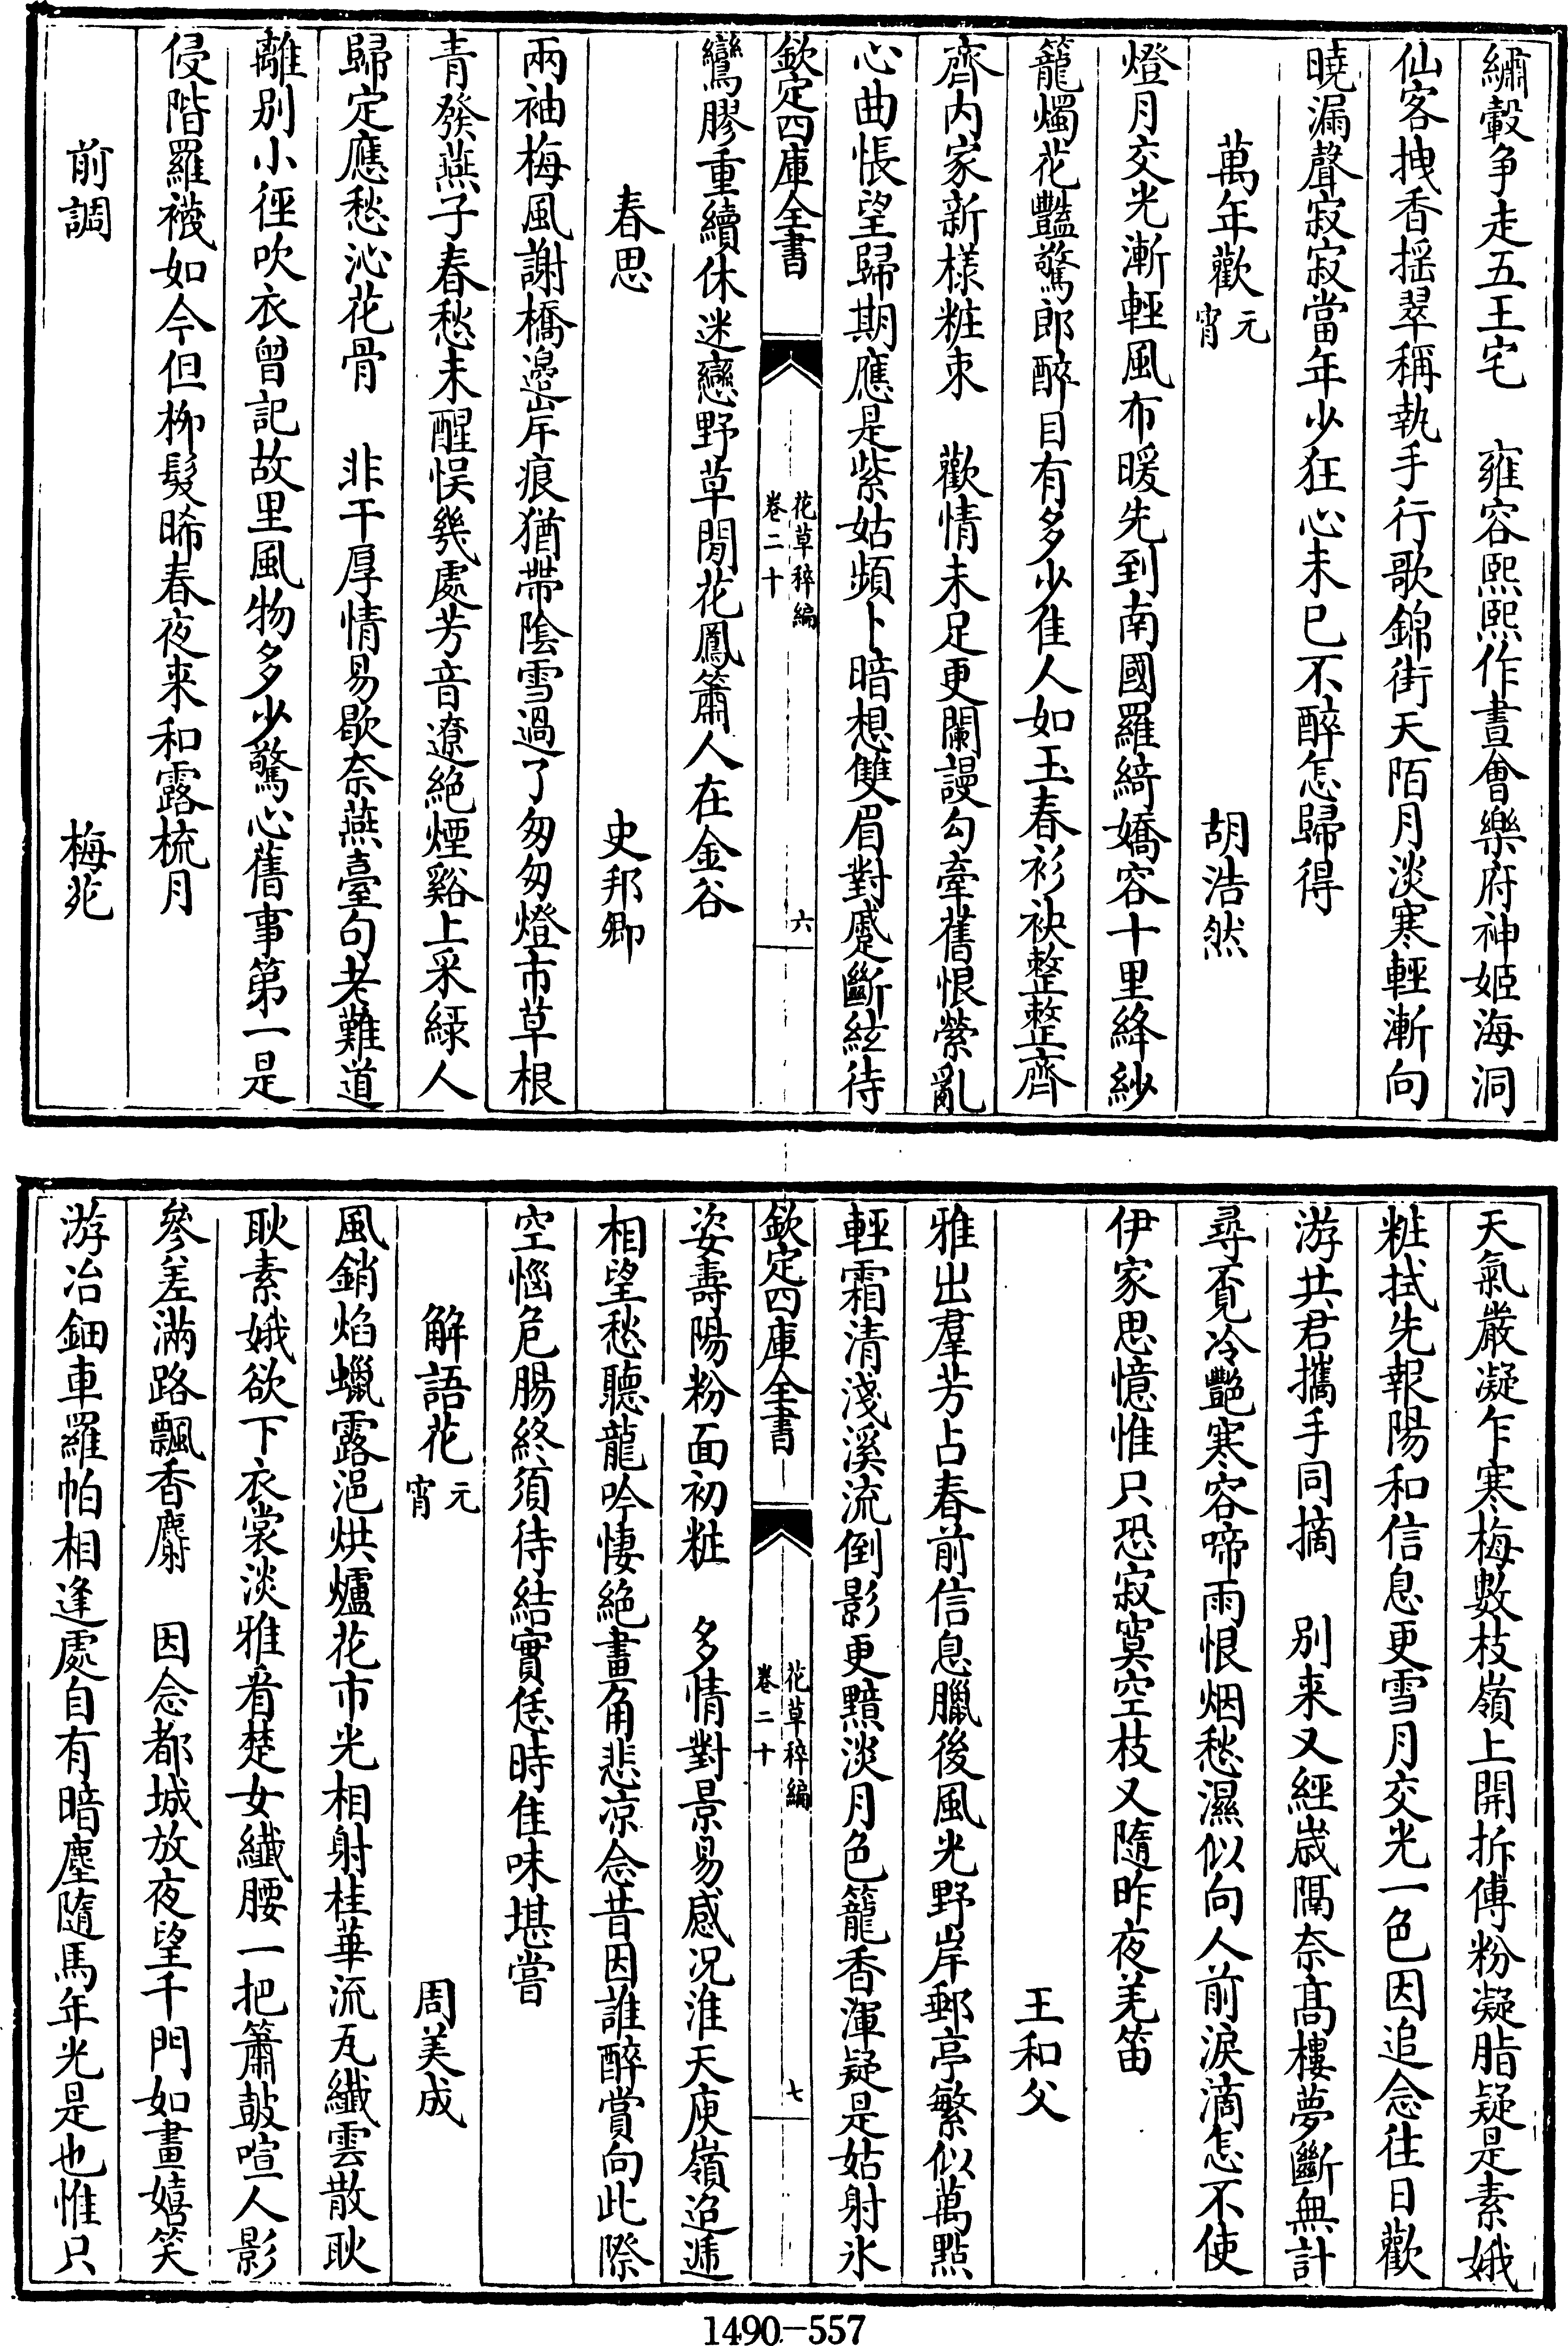 繡轂争走五王宅　雍容熙熙作晝會樂府神姬海洞
仙客拽香揺翠稱執手行歌錦街天陌月淡寒輕漸向
曉漏聲寂寂當年少狂心未已不醉怎歸得
萬年歡元宵　胡浩然
燈月交光漸輕風布暖先到南國羅綺嬌容十里絳紗
籠燭花豔驚郎醉目有多少佳人如玉春衫袂整整齊
齊内家新樣粧束　歡情未足更闌謾勾牽舊恨縈亂
心曲悵望歸期應是紫姑頻卜暗想雙眉對蹙斷絃待
欽定四庫全書　花草稡編卷二十　六
鸞膠重續休迷戀野草閒花鳳簫人在金谷
春思　史邦卿
兩袖梅風謝橋邉岸痕猶帶隂雪過了匆匆燈市草根
青發燕子春愁未醒悞幾處芳音遼絶煙谿上采緑人
歸定應愁沁花骨　非干厚情易歇奈燕臺句老難道
離别小徑吹衣曾記故里風物多少驚心舊事第一是
侵階羅襪如今但栁髮晞春夜來和露梳月
前調　梅苑
天氣嚴凝乍寒梅數枝嶺上開拆傅粉凝脂疑是素娥
粧拭先報陽和信息更雪月交光一色因追念往日歡
游共君攜手同摘　别來又經嵗隔奈髙樓夢斷無計
尋覔冷艷寒容啼雨恨烟愁濕似向人前淚滴怎不使
伊家思憶惟只恐寂寞空枝又隨昨夜羌笛
王和父
雅出羣芳占春前信息臘後風光野岸郵亭繁似萬點
輕霜清淺溪流倒影更黯淡月色籠香渾疑是姑射氷
欽定四庫全書　花草稡編卷二十　七
姿壽陽粉面初粧　多情對景易感况淮天庾嶺迢遞
相望愁聽龍吟悽絶畫角悲凉念昔因誰醉賞向此際
空惱危腸終須待結實恁時佳味堪嘗
解語花元宵　周美成
風銷焰蠟露浥烘爐花市光相射桂華流瓦纖雲散耿
耿素娥欲下衣裳淡雅看楚女纖腰一把簫鼓喧人影
參差滿路飄香麝　因念都城放夜望千門如晝嬉笑
游冶鈿車羅帕相逢處自有暗塵隨馬年光是也惟只
1490-557